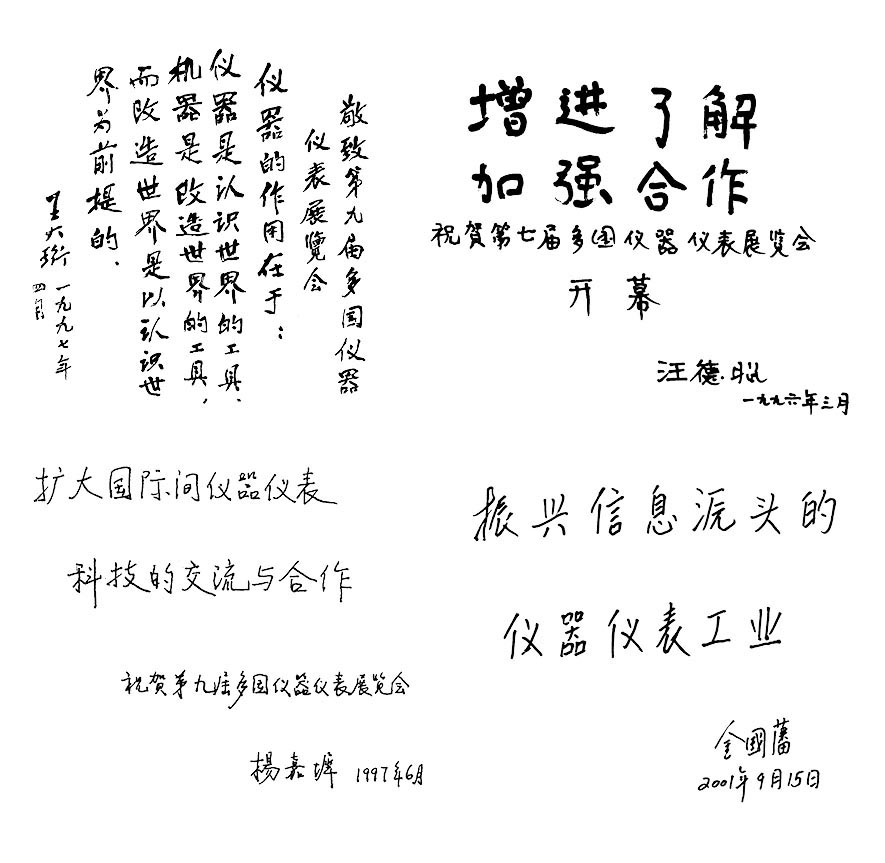 敬致第九届多国仪器
仪表展覽会
仪器的作用在于：
仪器是认识世界的工具、
机器是改造世界的工具，
而改造世界是以认识世
界为前提的．
王大珩 一九九七年
增进了解
加强合作
祝贺第七届多国仪器仪表展览会
开幕
汪德昭
一九九六年三月
扩大国际间仪器仪表
科技的交流与合作
祝贺第九届多国仪器仪表展览会
楊嘉墀 1997年6月
振兴信息源头的
仪器仪表工业
金國藩
2001年9月15日